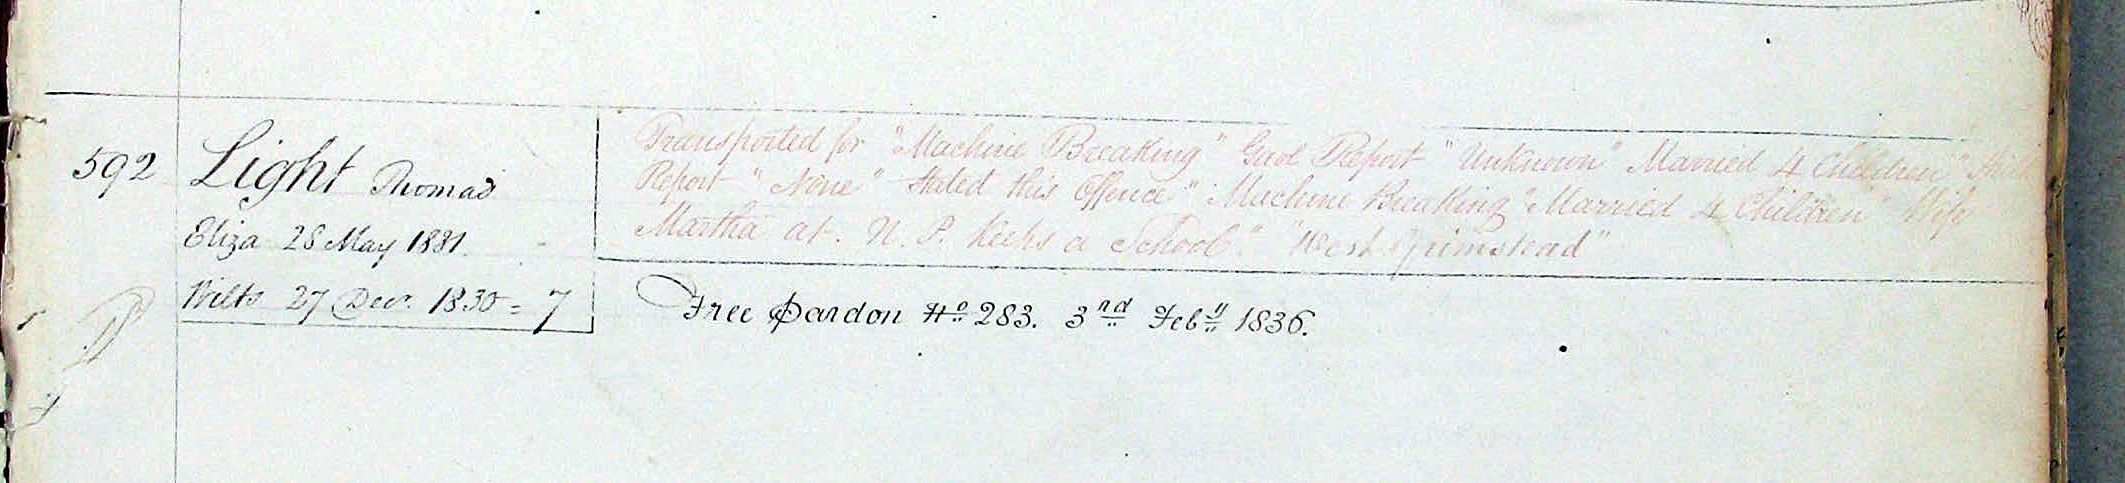 592
Light Thomas
Eliza 28 May 1831.
Wilts 27 Decr. 1830 = 7
Transported for "Machine Breaking" Gaol Report "Unknown" Married 4 Children"
Report "None" Stated this Offence "Machine Breaking" Married 4 Children" Wife
Martha at. N. P. keeps a School". "West Grimstead"
Free Pardon No 283. 3rd Feby 1836.